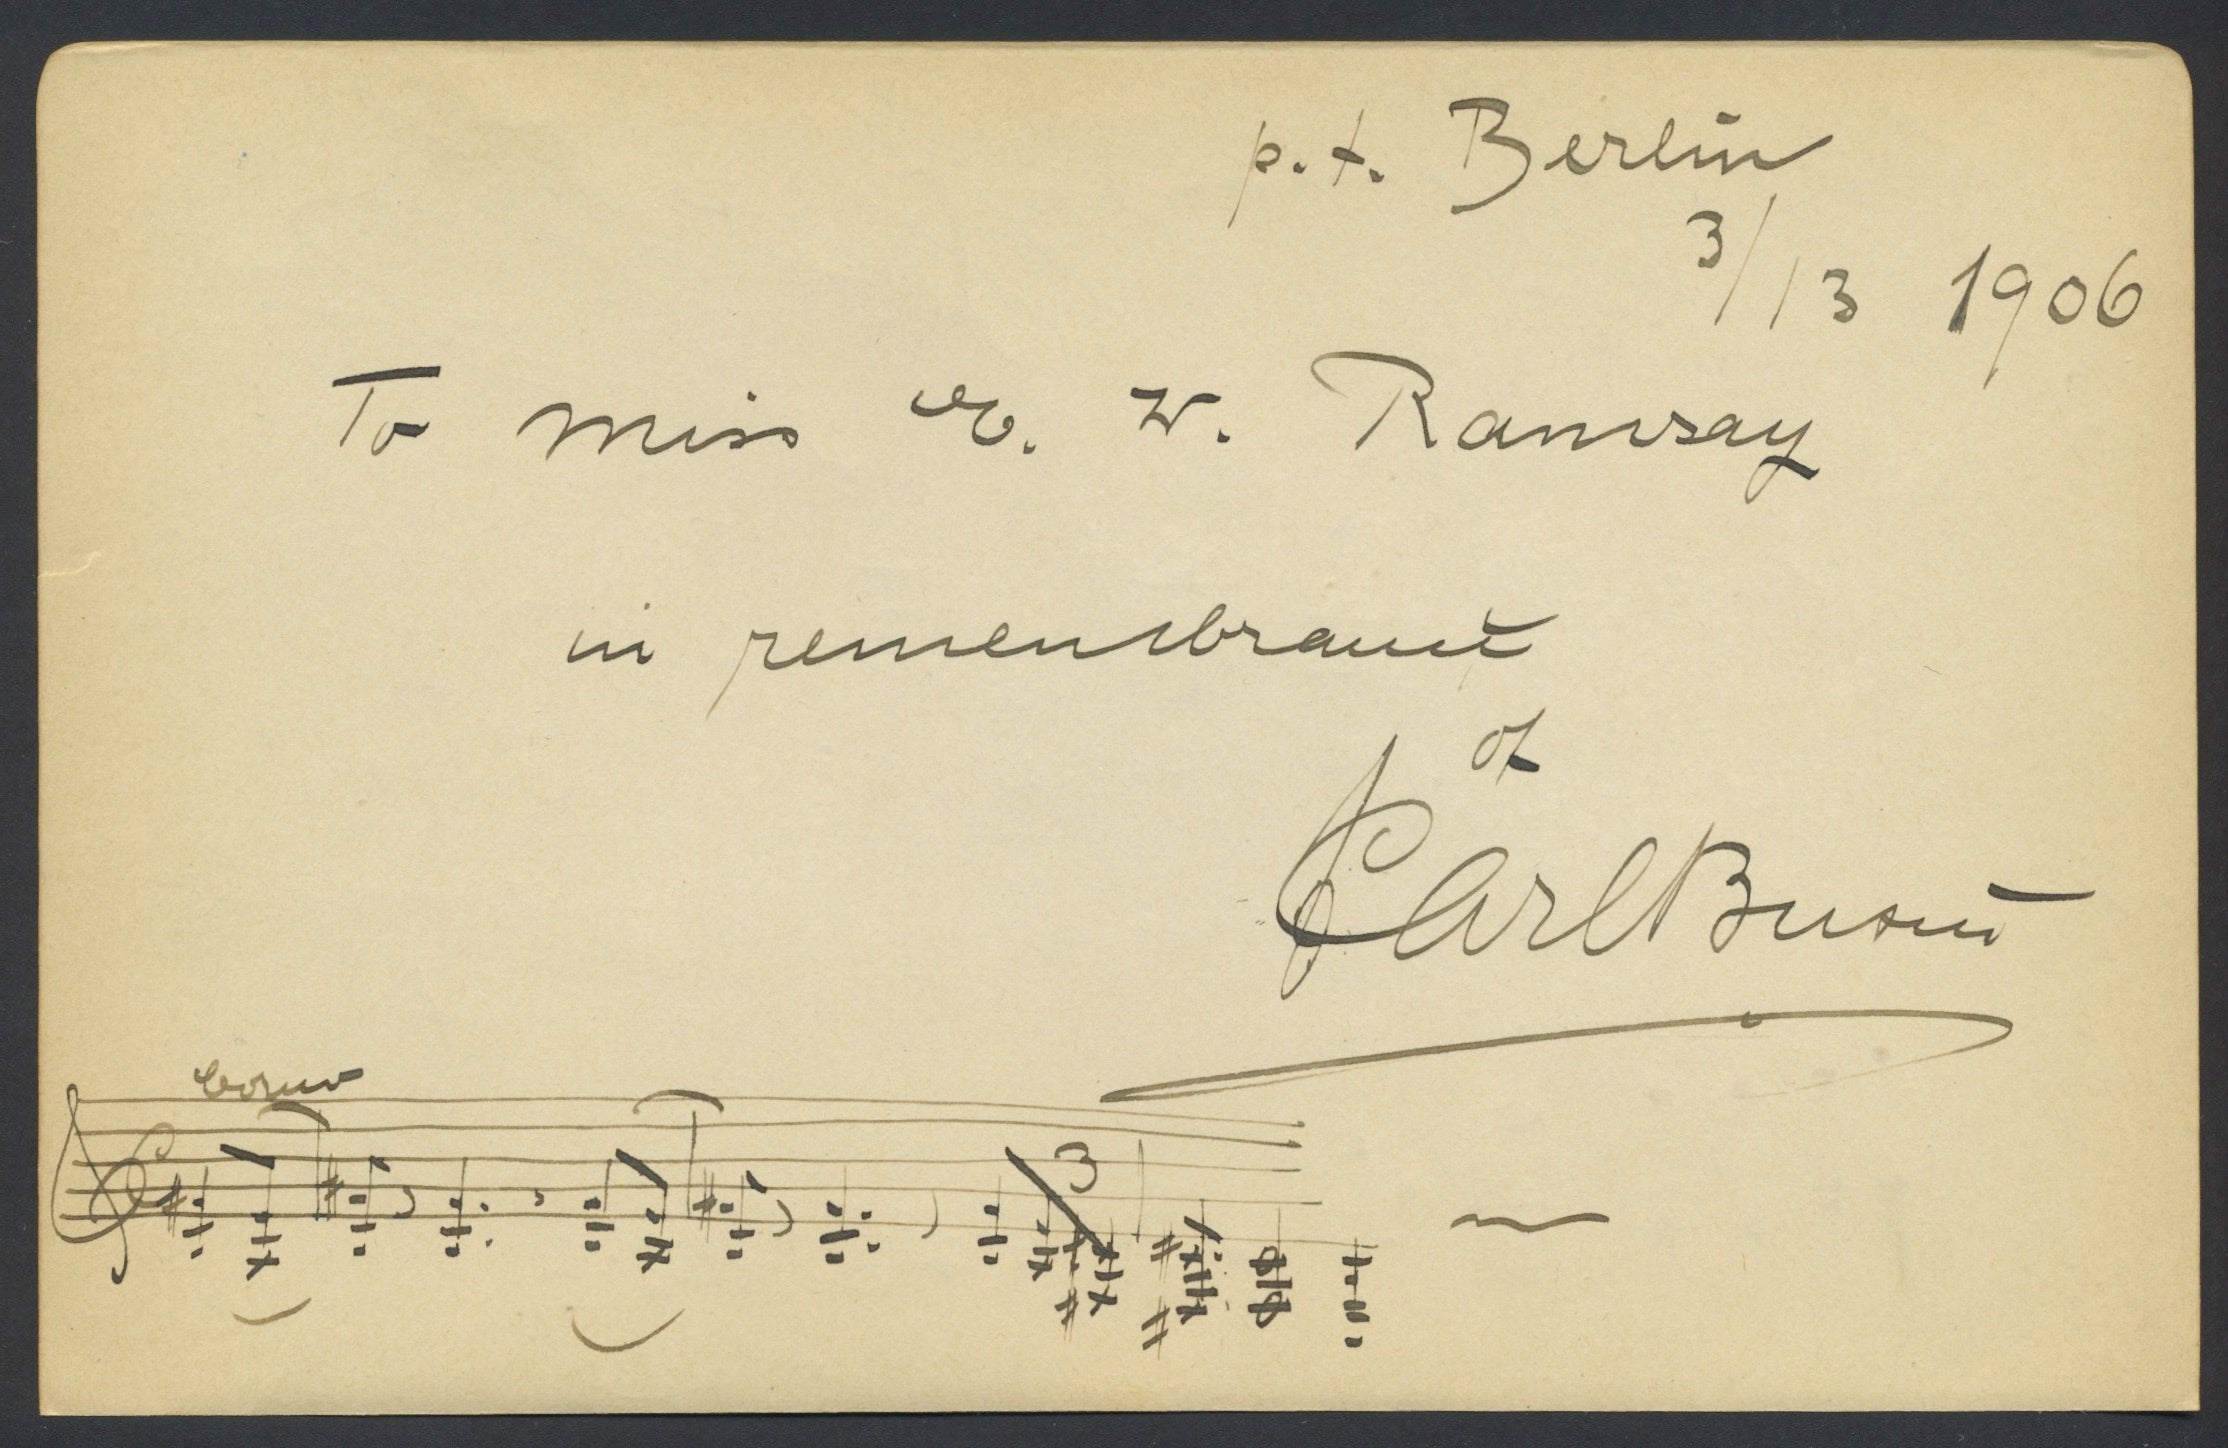 p.t. Berlin
3/13 1906
To Miss E. W. Ramsay
in remembrance
of
Carl Busch
Corno
3